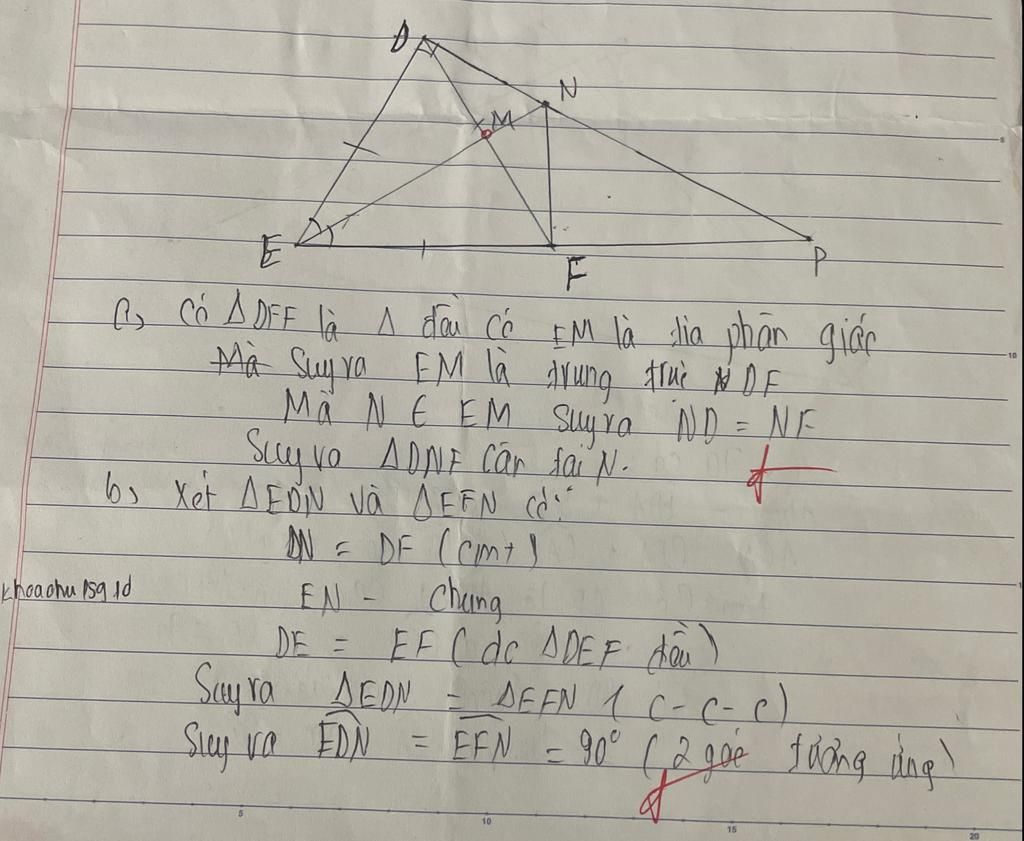 D
N
M
E
F
P
a, Có ΔDEF là Δ đều có EM là tia phân giác
Mà Suy ra EM là trung trực DF
Mà N ∈ EM Suy ra ND = NF
Suy ra ΔDNF cân tại N.
b, Xét ΔEDN và ΔEFN có:
DN = DF (cmt)
khoachu15g1d
EN - Chung
DE = EF (do ΔDEF đều)
Suy ra ΔEDN = ΔEFN (c-c-c)
Suy ra EDN = EFN = 90° (2 góc tương ứng)
5
10
15
20
5
10